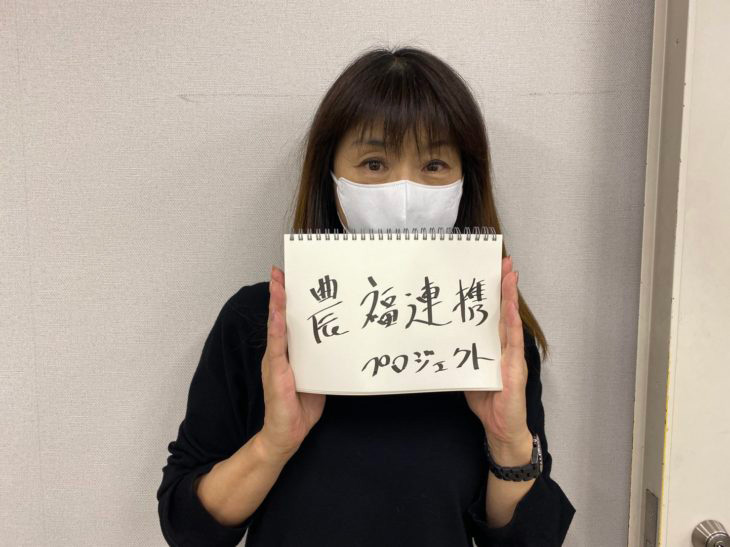 農福連携
プロジェクト